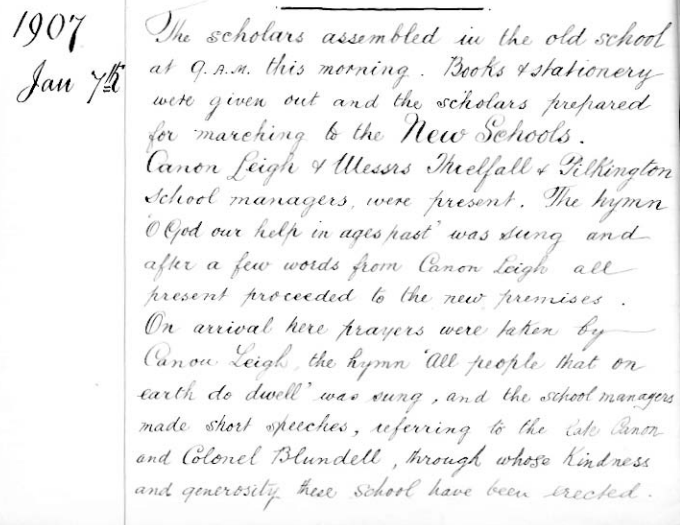 1907
Jan 7th
The scholars assembled in the old school
at 9. A.M. this morning. Books & stationery
were given out and the scholars prepared
for marching to the New Schools.
Canon Leigh & Messrs Threlfall & Pilkington
School managers, were present. The hymn
'O God our help in ages past' was sung and
after a few words from Canon Leigh all
present proceeded to the new premises.
On arrival here prayers were taken by
Canon Leigh, the hymn 'All people that on
earth do dwell' was sung, and the school managers
made short speeches, referring to the late Canon
and Colonel Blundell, through whose Kindness
and generosity these School have been erected.